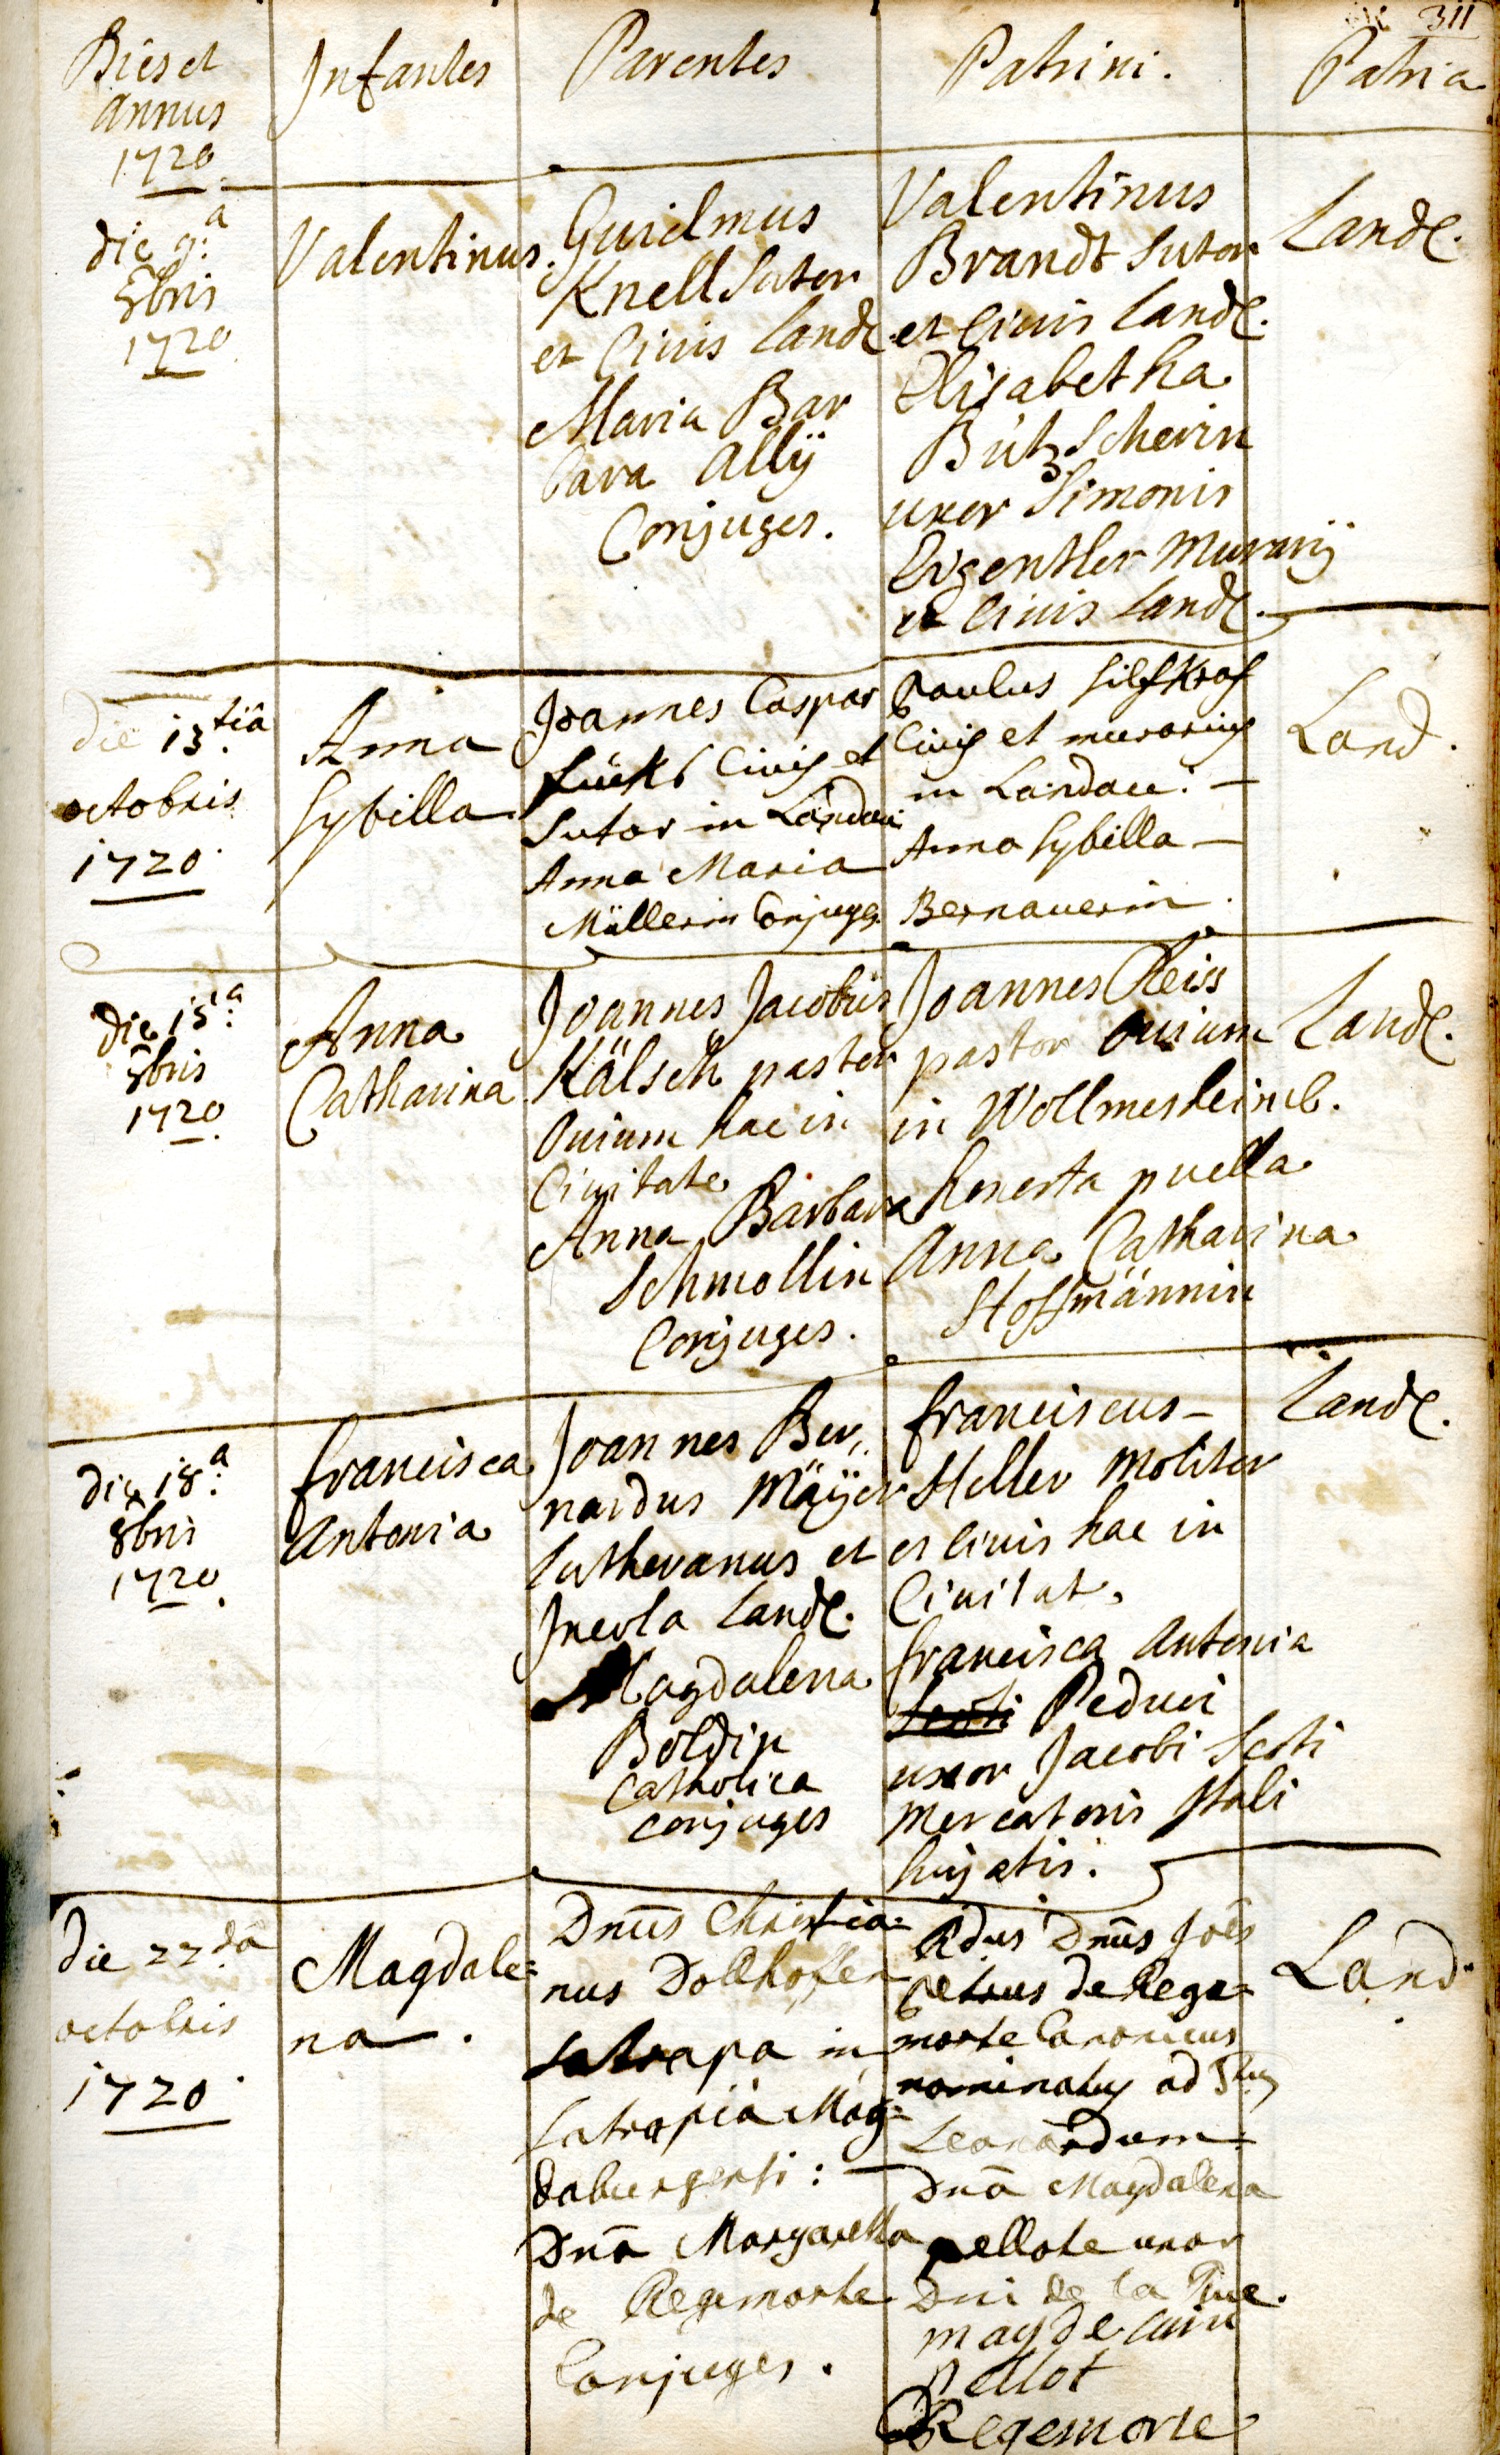 311
Dies et
annus
1720
Infantes
Parentes
Patrini.
Patria
die 9:a
8bris
1720
Valentinus.
Guielmus
Knell Sutor
et Civis Land.
Maria Bar
bara Allÿ
Conjuges.
Valentinus
Brandt Sutor
et Civis Land.
Elisabetha
Bützscherin
uxor Simonis
Eigentler Murarij
et Civis Land.
Land.
die 13.tia
octobris
1720.
Anna
Sybilla
Joannes Caspar
fücks Civis et
Sutor in Landau
Anna Maria
Müllerin Conjuges
Paulus hilfkraf
Civis et murarius
in Landau. —
Anna Sybilla —
Bernauerin.
Land.
die 15:a
8bris
1720.
Anna
Catharina
Joannes Jacobus
Kälsch pastor
Ovium hac in
Civitate
Anna Barbara
Schmollin
Conjuges.
Joannes Reiss
pastor ovium
in Wollmesheimb.
honesta puella
Anna Catharina
Hoffmännin
Land.
die 18:a
8bris
1720.
francisca
Antonia
Joannes Ber,,
nardus Mäÿer
Lutheranus et
Incola Land.
Magdalena
Boldin
Catholica
conjuges
franciscus –
Heller Molitor
et Civis hac in
Civitat.
francisca Antonia
Scoti Peduci
uxor Jacobi Scoti
Mercatoris Itali
hujatis.
Land.
die 22.da
octobris
1720.
Magdale=
na.
Dnūs Christia=
nus Dollhofen
Satrapa in
Satrapiâ Mag=
daburgensi: —
Dnā Margaretha
de Regemorte
Conjuges.
Rdus Dnūs Joēs
Petrus de Rege=
morte Canonicus
nominatus ad
Leonardum
Dnā Magdalena
pellote uxor
Dni de la Rue.
magdelain
pellot
Regemorte
Land.